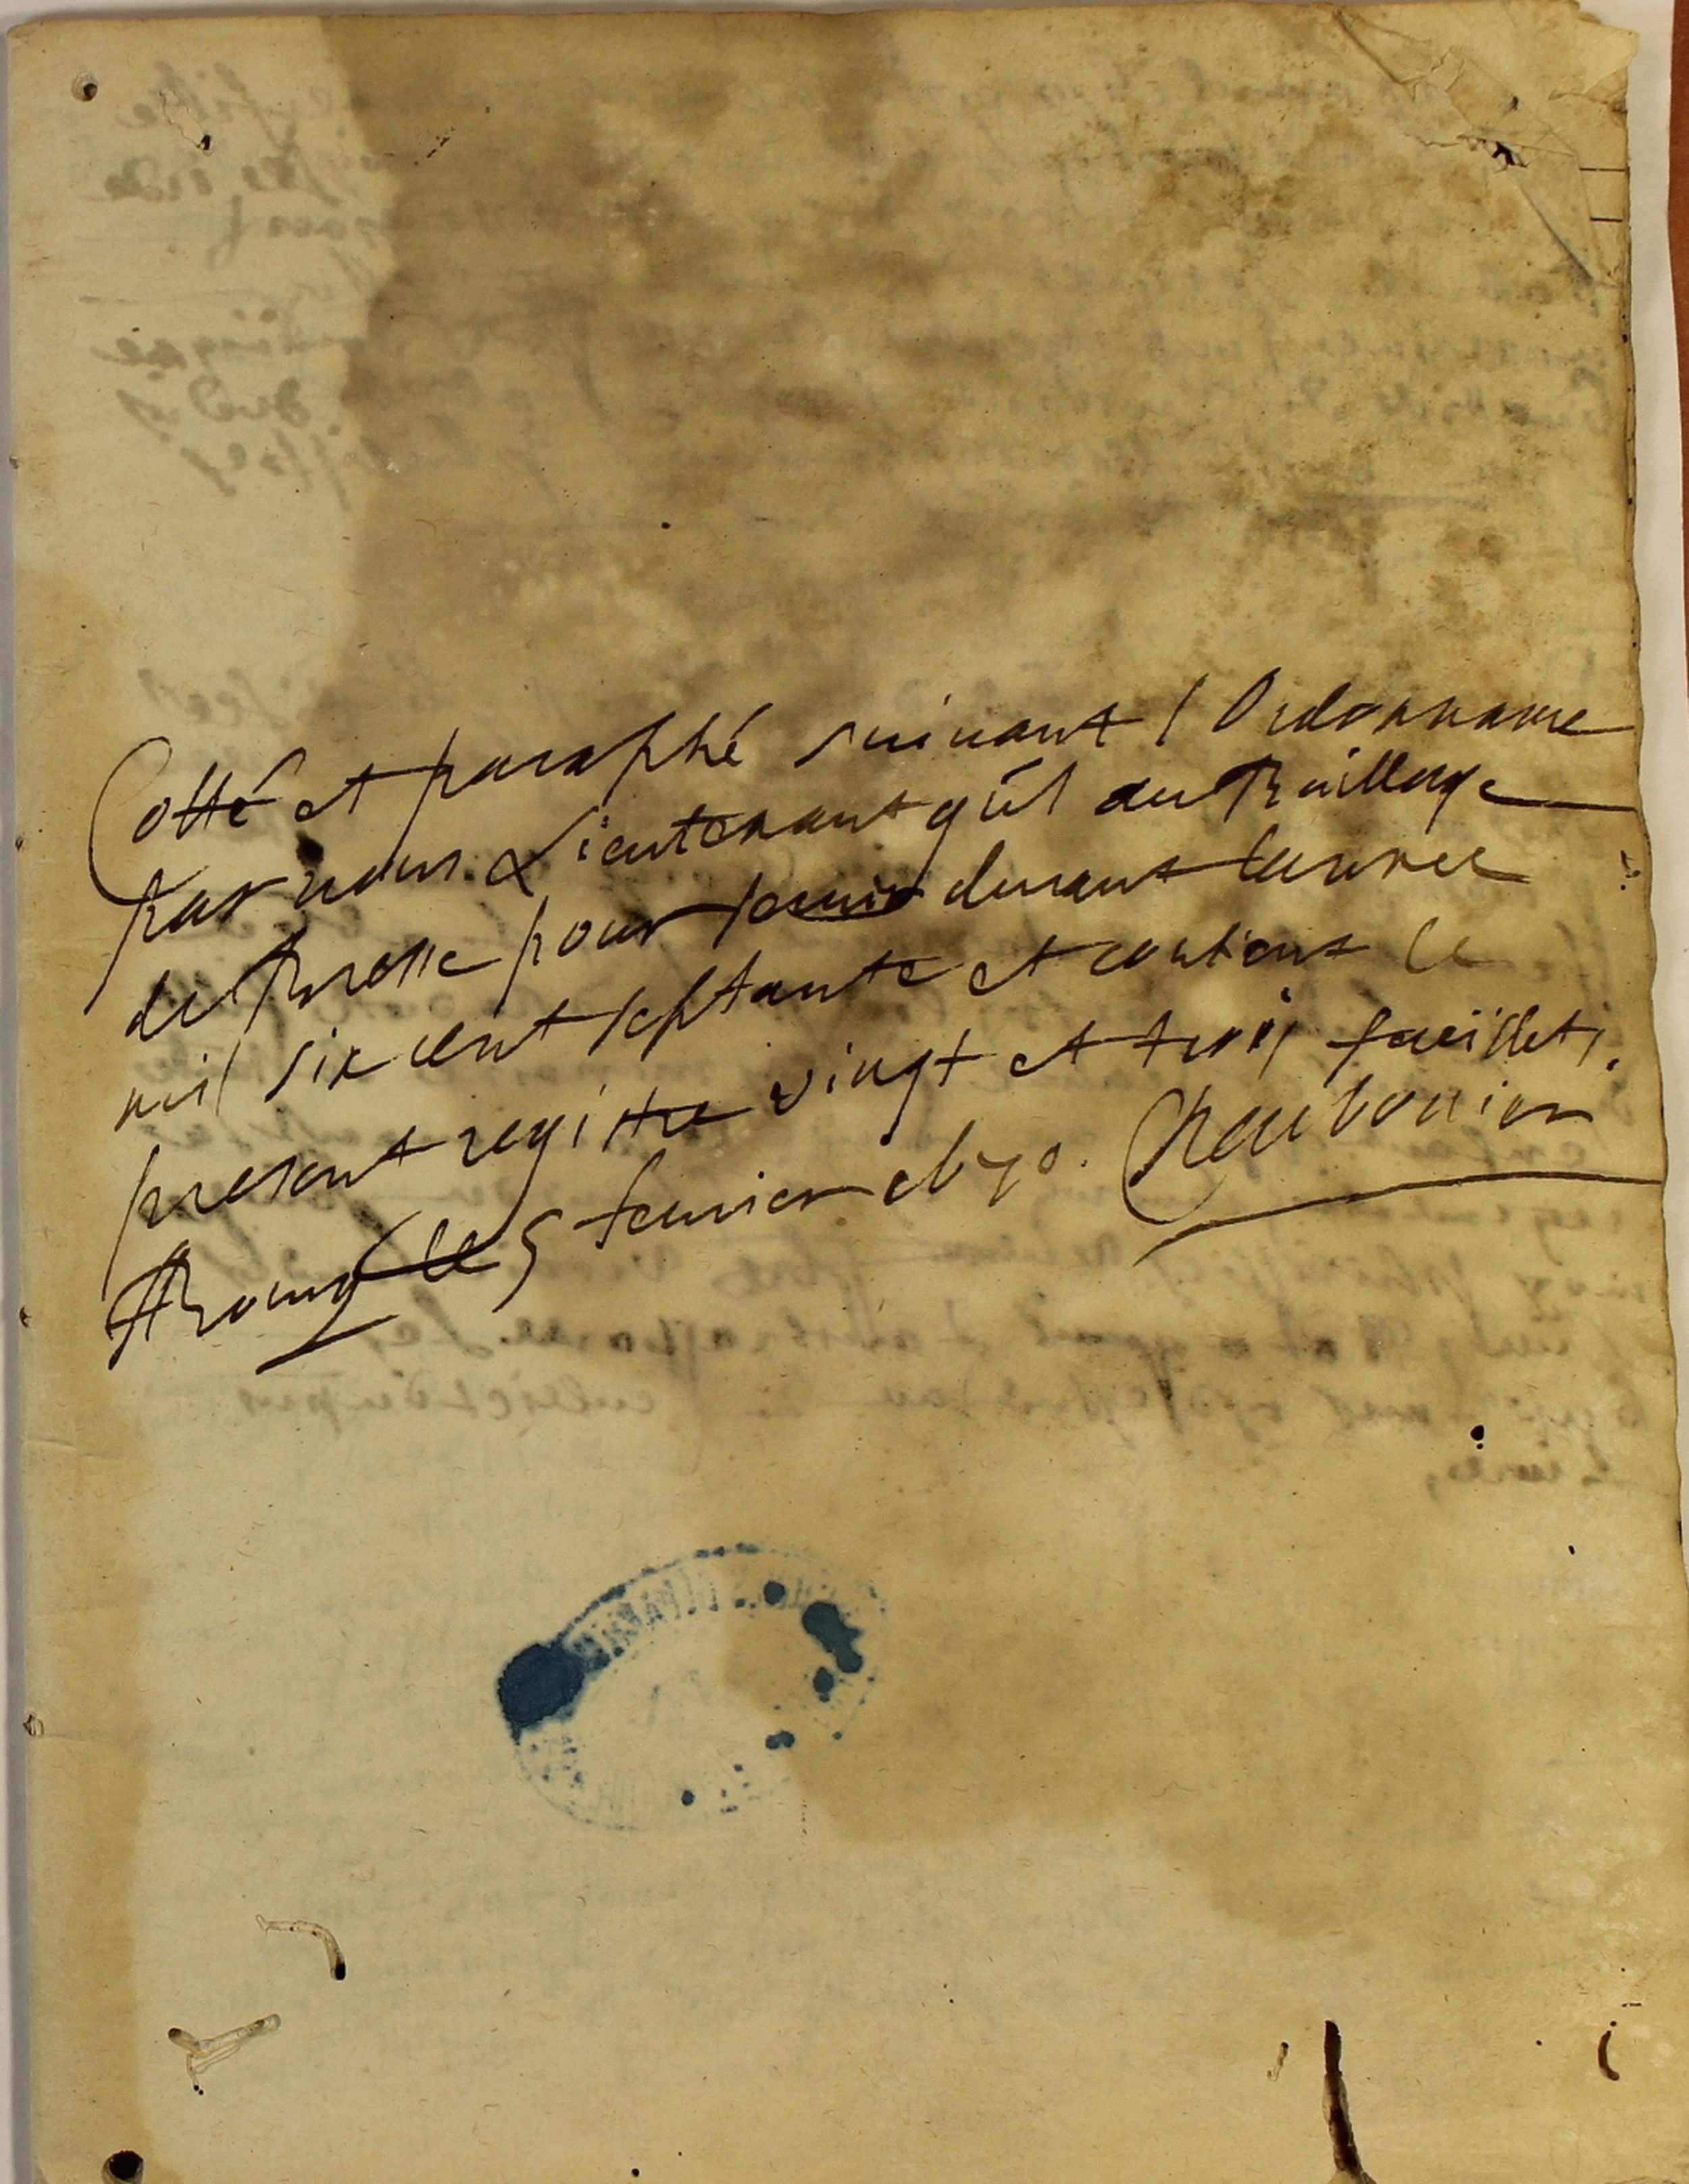 Cotté et paraphé suiuant l'Ordonnance
par nous Lieutenant g'ñl au Bailliage
de Bresse pour seruir durant l'année
mil six cent septante et contient le
present registre vingt et trois feuillets.
A Bourg le 5 feurier 1670.